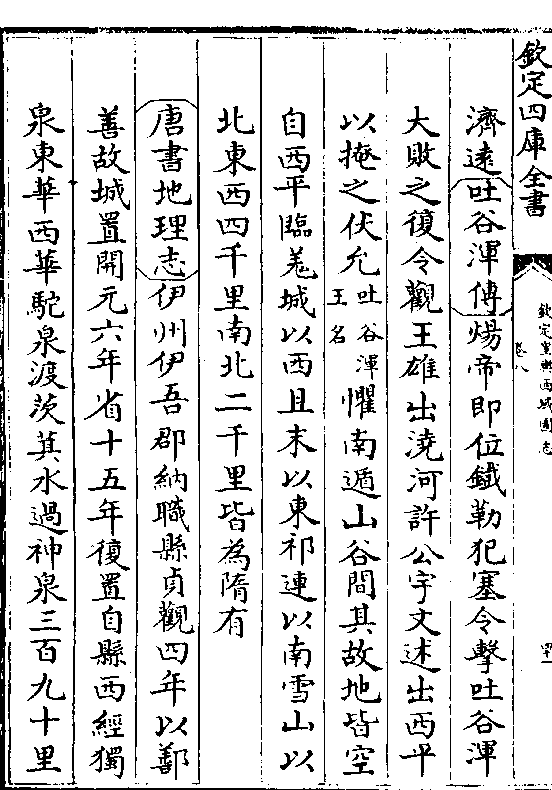 欽定四庫全書
欽定皇輿西域圖志
卷八
濟遠吐谷渾傳煬帝即位鐵勒犯塞令擊吐谷渾
大敗之復令觀王雄出澆河許公宇文述出西平
以掩之伏允吐谷渾王名懼南遁山谷間其故地皆空
自西平臨羌城以西且末以東祁連以南雪山以
北東西四千里南北二千里皆為隋有
唐書地理志伊州伊吾郡納職縣貞觀四年以鄯
善故城置開元六年省十五年復置自縣西經獨
泉東華西華駝泉渡茨萁水過神泉三百九十里